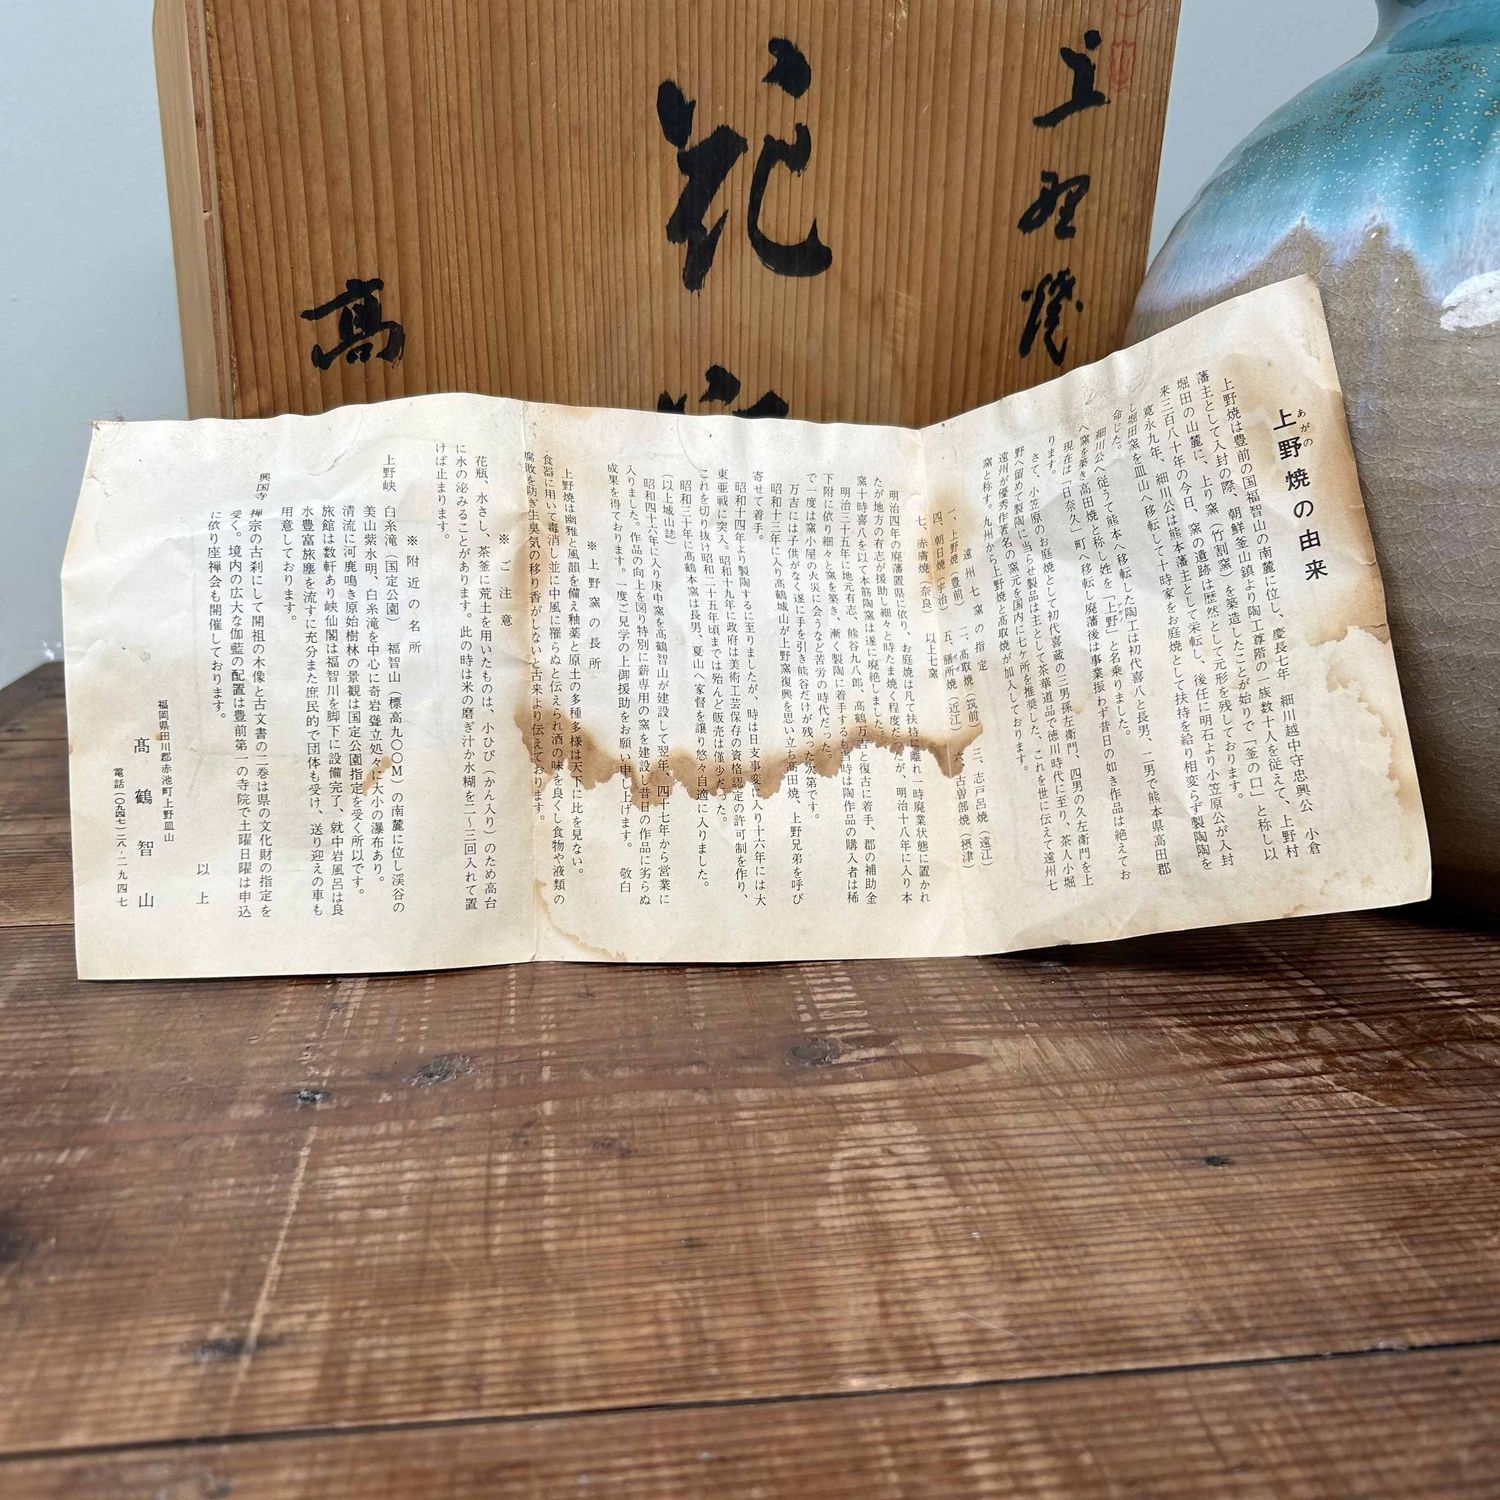 上野焼
花
高
上野焼の由来
あがの
上野焼は豊前の国福智山の南麓に位し、慶長七年　細川越中守忠興公　小倉
藩主として入封の際、朝鮮釜山鎮より陶工尊階の一族数十人を従えて、上野村
堀田の山麓に、上り窯（竹割窯）を築造したことが始りで「釜の口」と称し以
来三百八十年の今日、窯の遺跡は歴然として元形を残しております。
寛永九年、細川公は熊本藩主として栄転し、後任に明石より小笠原公が入封
し堀田窯を皿山へ移転して十時家をお庭焼として扶持を給り相変らず製陶陶を
命じた。
細川公へ従うて熊本へ移転した陶工は初代喜八と長男、二男で熊本県高田郡
へ窯を築き高田焼と称し姓を「上野」と名乗りました。
現在は「日奈久」町へ移転し廃藩後は事業振わず昔日の如き作品は絶えてお
ります。
さて、小笠原のお庭焼として初代喜蔵の三男孫左衛門、四男の久左衛門を上
野へ留めて製陶に当らせ製品は主として茶華道品で徳川時代に至り、茶人小堀
遠州が優秀作者名の窯元を国内に七ケ所を推奨した、これを世に伝えて遠州七
窯と称す。九州から上野焼と高取焼が加入しております。
遠州七窯の指定
一、上野焼（豊前）　二、高取焼（筑前）　三、志戸呂焼（遠江）
四、朝日焼（宇治）　五、膳所焼（近江）　六、古曽部焼（摂津）
七、赤膚焼（奈良）　以上七窯
明治四年の廃藩置県に依り、お庭焼は凡て扶持に離れ一時廃業状態に置かれ
たが地方の有志が援助し細々と時たま焼く程度だったが、明治十八年に入り本
窯十時喜八を以て本筋陶窯は遂に廃絶しました。
明治三十五年に地元有志、熊谷九八郎、高鶴万吉と復古に着手、郡の補助金
下附に依り細々と窯を築き、漸く製陶に着手するも当時は陶作品の購入者は稀
で一度は窯小屋の火災に会うなど苦労の時代だった。
万吉には子供がなく遂に手を引き熊谷だけが残った次第です。
昭和十三年に入り高鶴城山が上野窯復興を思い立ち高田焼、上野兄弟を呼び
寄せて着手。
昭和十四年より製陶するに至りましたが、時は日支事変に入り十六年には大
東亜戦に突入。昭和十九年に政府は美術工芸保存の資格認定の許可制を作り、
これを切り抜け昭和二十五年頃までは殆んど販売は僅少だった。
昭和三十年に高鶴本窯は長男、夏山へ家督を譲り悠々自適に入りました。
（以上城山誌）
昭和四十六年に入り庚申窯を高鶴智山が建設して翌年、四十七年から営業に
入りました。作品の向上を図り特別に薪専用の窯を建設し昔日の作品に劣らぬ
成果を得ております。一度ご見学の上御援助をお願い申し上げます。　敬白
※上野窯の長所
上野焼は幽雅と風韻を備え釉薬と原土の多種多様は天下に比を見ない。
食器に用いて毒消し並に中風に罹らぬと伝えられ酒の味を良くし食物や液類の
腐敗を防ぎ生臭気の移り香がしないと古来より伝えております。
※ご注意
花瓶、水さし、茶釜に荒土を用いたものは、小ひび（かん入り）のため高台
に水の泌みることがあります。此の時は米の磨ぎ汁か水糊を二～三回入れて置
けば止まります。
※附近の名所
上野峡　白糸滝（国定公園）　福智山（標高九〇〇M）の南麓に位し渓谷の
美山紫水明、白糸滝を中心に奇岩聳立処々に大小の瀑布あり。
清流に河鹿鳴き原始樹林の景観は国定公園指定を受く所以です。
旅館は数軒あり峡仙閣は福智川を脚下に設備完了、就中岩風呂は良
水豊富旅塵を流すに充分また庶民的で団体も受け、送り迎えの車も
用意しております。
興国寺　禅宗の古刹にして開祖の木像と古文書の二巻は県の文化財の指定を
受く。境内の広大な伽藍の配置は豊前第一の寺院で土曜日曜は申込
に依り座禅会も開催しております。
以上
福岡県田川郡赤池町上野皿山
高鶴智山
電話（〇九四七）二八・二九四七